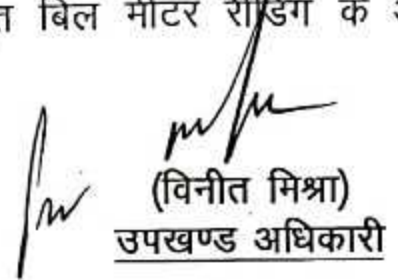 बिल मीटर रीडिंग के
(विनीत मिश्रा)
उपखण्ड अधिकारी